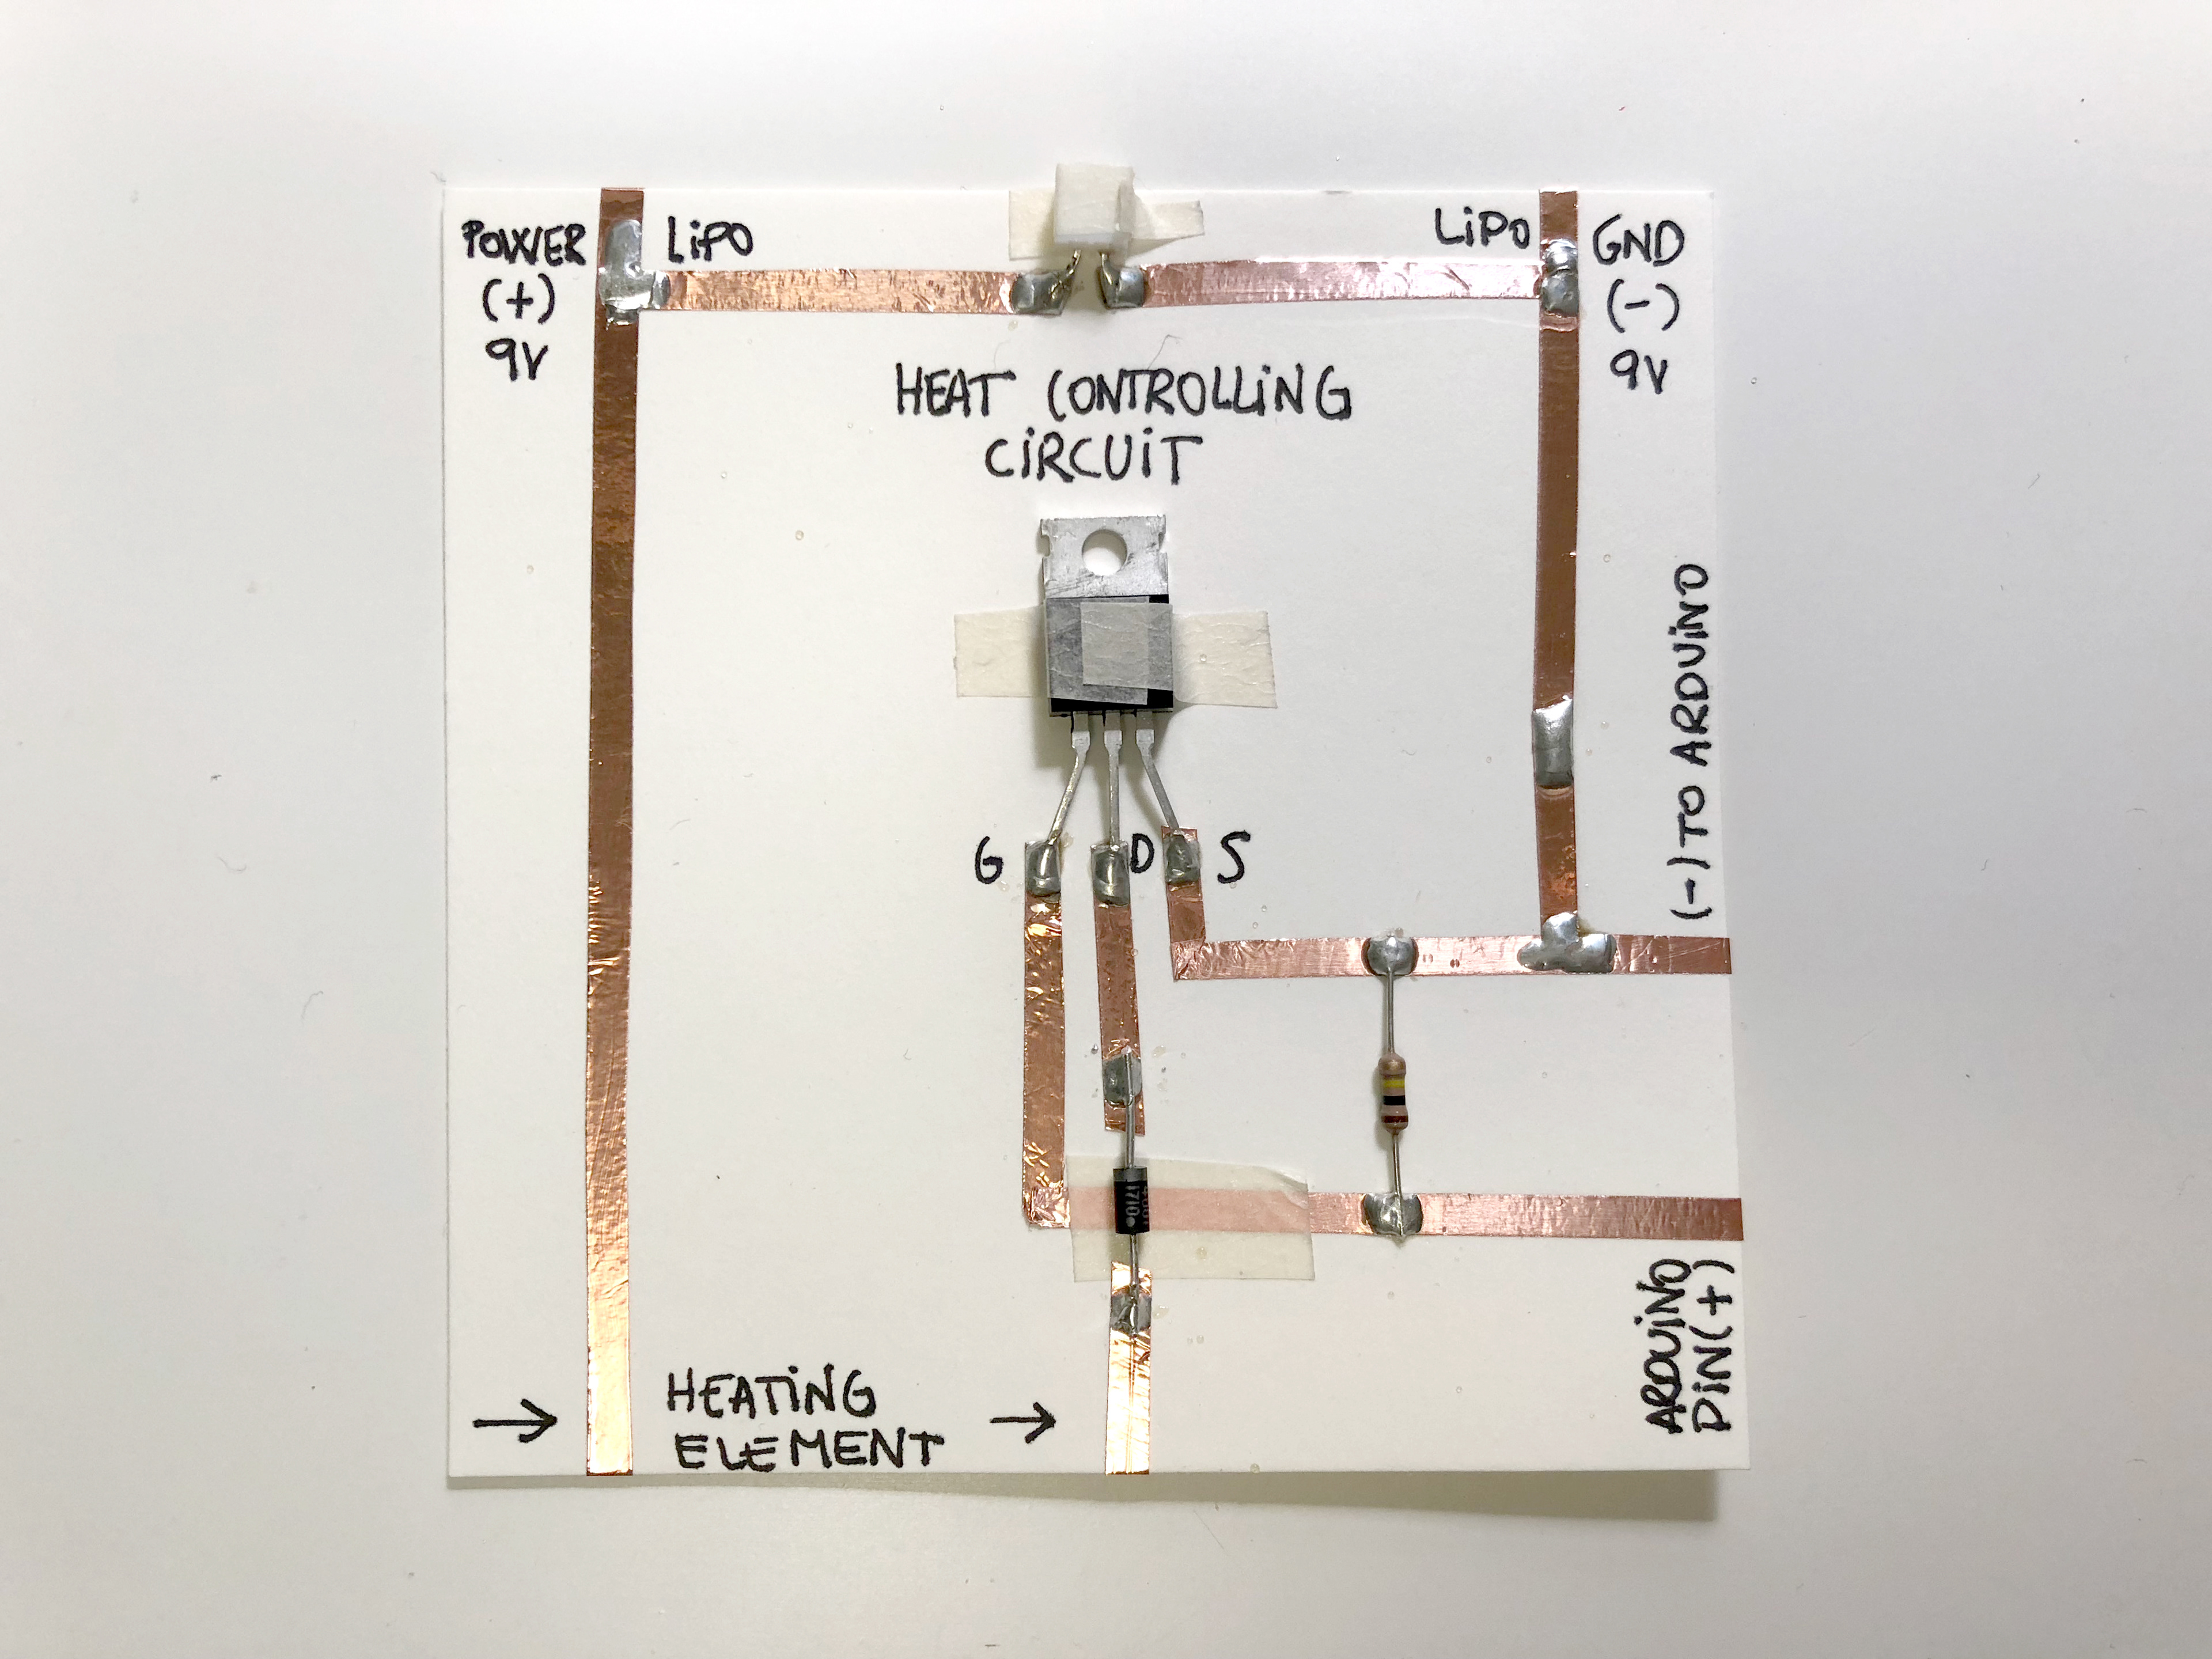 POWER
(+)
9V
LiPO
LiPO
GND
(-)
9V
HEAT CONTROLLiNG
CiRCUiT
(-) TO ARDUiNO
G
D
S
ARDUiNO
PiN(+)
→ HEATiNG →
ELEMENT